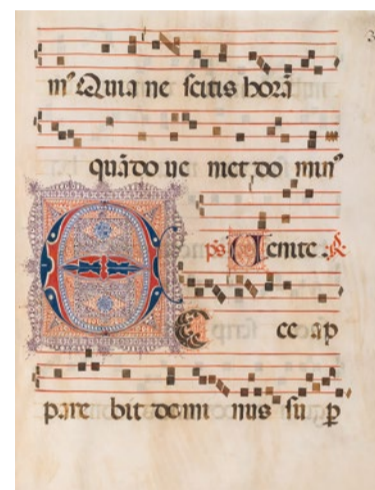 m⁹ Quia ne scitis horã
quãdo ue met do min⁹
ps Uenite. R
E cce ap
pare bit domi nus su p